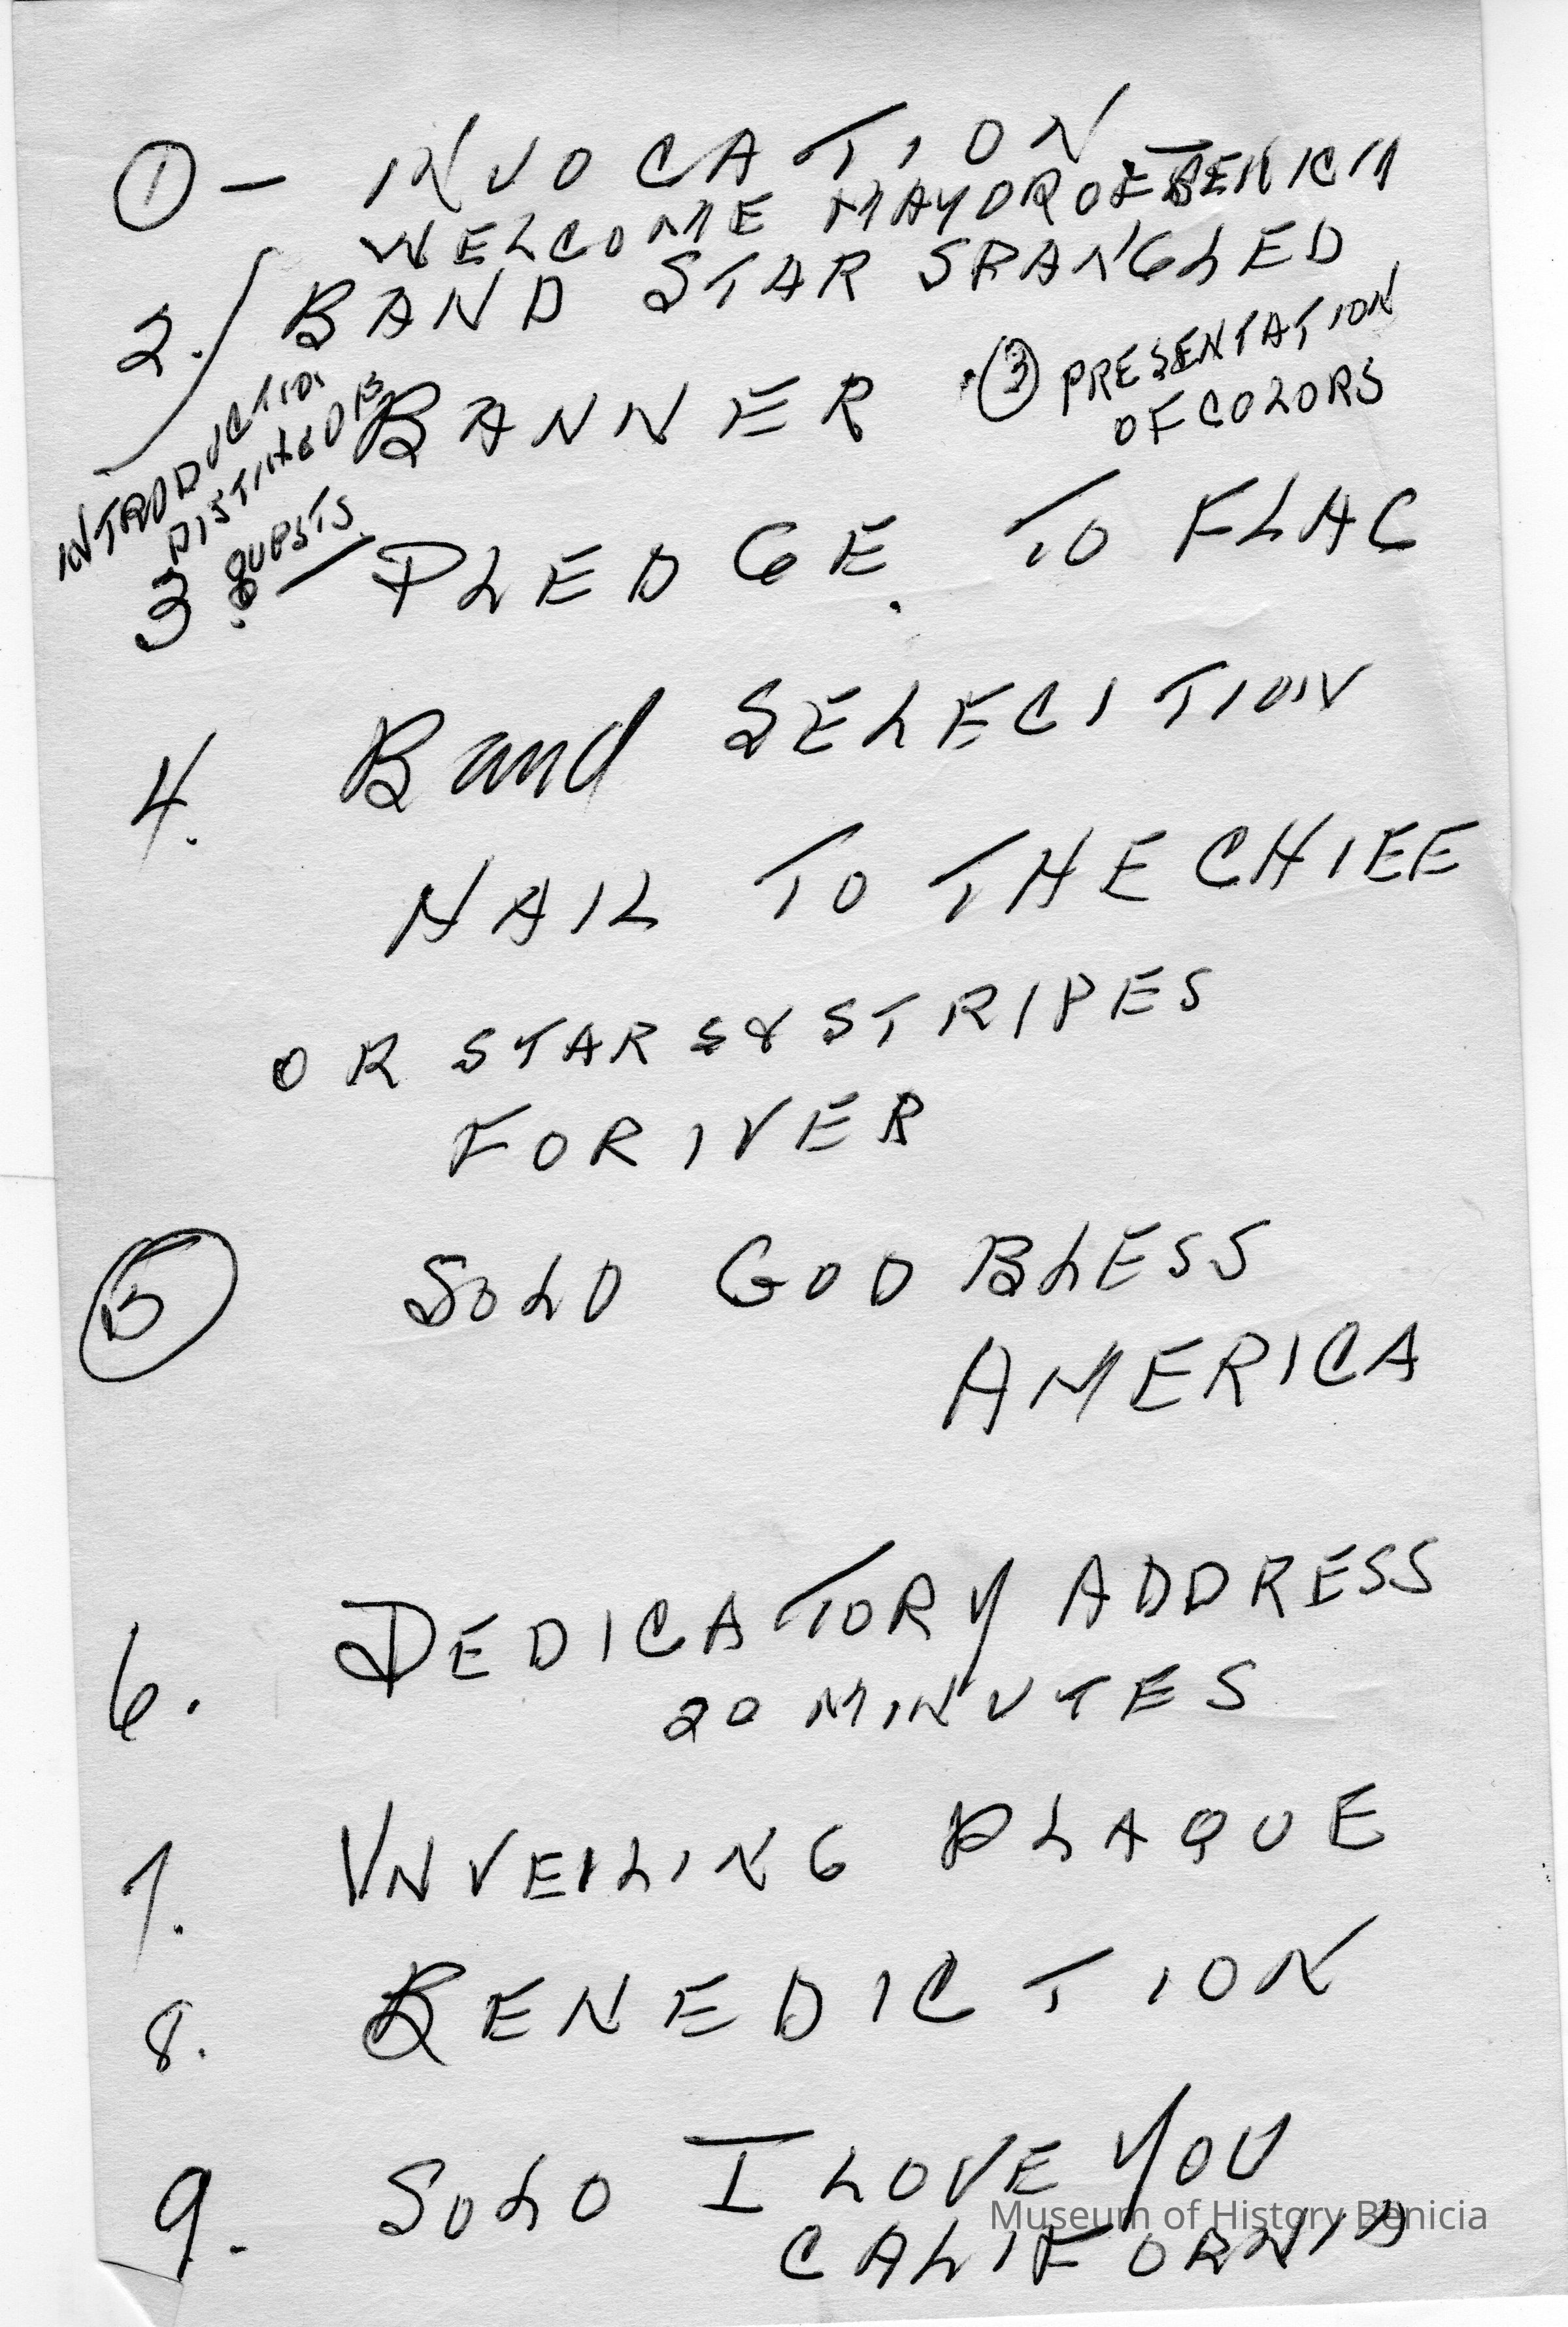 ① – INVOCATION
WELCOME MAYOR OF BENICIA
2. BAND STAR SPANGLED
BANNER
③ PRESENTATION
OF COLORS
INTRODUCTION
GUESTS
3. – PLEDGE. TO FLAG
4. Band SELECITION
HAIL TO THE CHIEF
OR STARS & STRIPES
FORIVER
⑤ SOLO GOD BLESS
AMERICA
6. DEDICATORY ADDRESS
20 MINUTES
7. UNVEILING PLAQUE
8. BENEDICTION
9. SOLO I LOVE YOU
CALIFORNIA
Museum of History Benicia